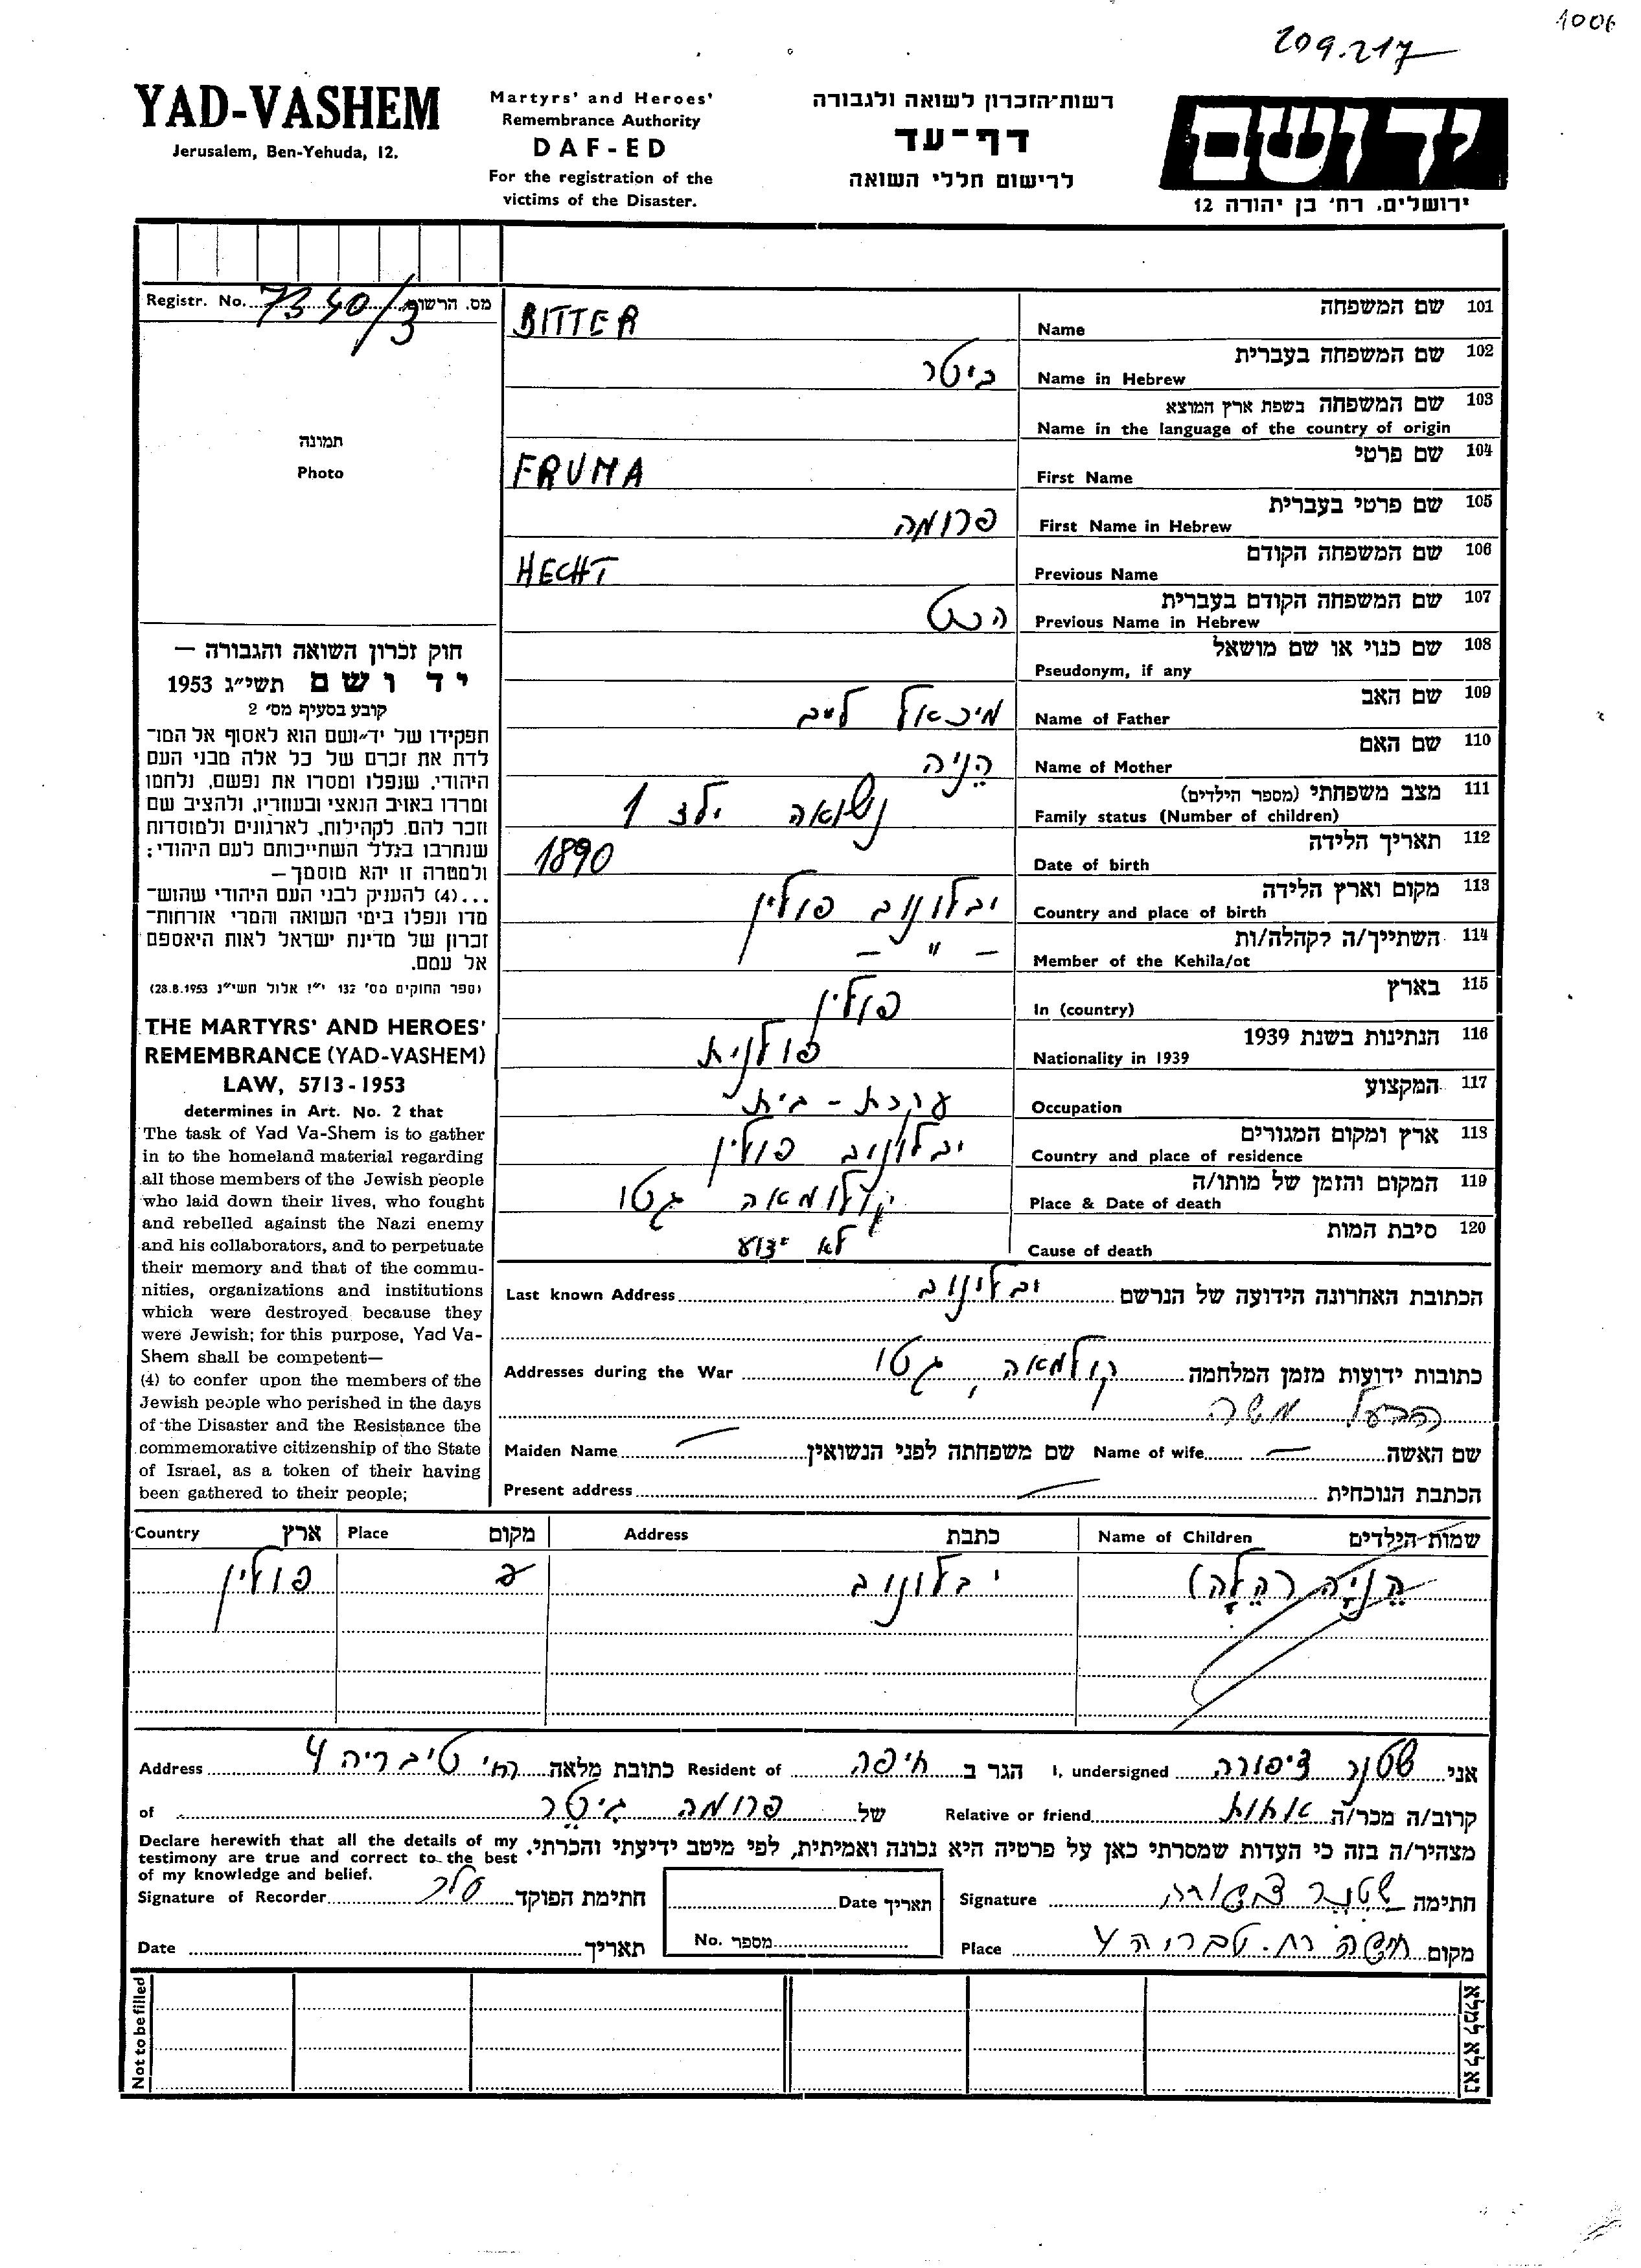 1006
209.217
YAD-VASHEM
Jerusalem, Ben-Yehuda, 12.
Martyrs' and Heroes'
Remembrance Authority
DAF-ED
For the registration of the
victims of the Disaster.
רשות־הזכרון לשואה ולגבורה
דף־עד
לרישום חללי השואה
יד ושם
ירושלים. רח' בן יהודה 12
Registr. No. 7340/3 מס. הרשום
תמונה
Photo
חוק זכרון השואה והגבורה —
יד ושם תשי״ג 1953
קובע בסעיף מס' 2
תפקידו של יד־ושם הוא לאסוף אל המו־
לדת את זכרם של כל אלה מבני העם
היהודי. שנפלו ומסרו את נפשם, נלחמו
ומרדו באויב הנאצי ובעוזריו, ולהציב שם
וזכר להם. לקהילות, לארגונים ולמוסדות
שנחרבו בגלל השתייכותם לעם היהודי:
ולמטרה זו יהא מוסמך—
...(4) להעניק לבני העם היהודי שהוש־
מדו ונפלו בימי השואה והמרי אזרחות־
זכרון של מדינת ישראל לאות היאספם
אל עמם.
(ספר החוקים מס' 132 י״ז אלול תשי״ג 28.8.1953)
THE MARTYRS' AND HEROES'
REMEMBRANCE (YAD-VASHEM)
LAW, 5713-1953
determines in Art. No. 2 that
The task of Yad Va-Shem is to gather
in to the homeland material regarding
all those members of the Jewish people
who laid down their lives, who fought
and rebelled against the Nazi enemy
and his collaborators, and to perpetuate
their memory and that of the commu-
nities, organizations and institutions
which were destroyed because they
were Jewish; for this purpose, Yad Va-
Shem shall be competent—
(4) to confer upon the members of the
Jewish people who perished in the days
of the Disaster and the Resistance the
commemorative citizenship of the State
of Israel, as a token of their having
been gathered to their people;
101 שם המשפחה
Name BITTER
102 שם המשפחה בעברית
Name in Hebrew ביטר
103 שם המשפחה בשפת ארץ המוצא
Name in the language of the country of origin
104 שם פרטי
First Name FRUMA
105 שם פרטי בעברית
First Name in Hebrew פרומה
106 שם המשפחה הקודם
Previous Name HECHT
107 שם המשפחה הקודם בעברית
Previous Name in Hebrew הכט
108 שם כנוי או שם מושאל
Pseudonym, if any
109 שם האב
Name of Father מיכאל לייב
110 שם האם
Name of Mother הניה
111 מצב משפחתי (מספר הילדים)
Family status (Number of children) נשואה ילד 1
112 תאריך הלידה
Date of birth 1890
113 מקום וארץ הלידה
Country and place of birth יבלונוב פולין
114 השתייך/ה לקהלה/ות
Member of the Kehila/ot — " —
115 בארץ
In (country) פולין
116 הנתינות בשנת 1939
Nationality in 1939 פולנית
117 המקצוע
Occupation עקרת-בית
118 ארץ ומקום המגורים
Country and place of residence יבלונוב פולין
119 המקום והזמן של מותו/ה
Place & Date of death קולומאה גטו
120 סיבת המות
Cause of death לא ידוע
Last known Address יבלונוב הכתובת האחרונה הידועה של הנרשם
Addresses during the War קולומאה, גטו כתובות ידועות מזמן המלחמה
הבעל משה
Maiden Name שם משפחתה לפני הנשואין Name of wife שם האשה
Present address הכתבת הנוכחית
Country ארץ Place מקום Address כתבת Name of Children שמות הילדים
הֶנְיָה (הֶלָה) יבלונוב פולין
אני שטנר ציפורה I, undersigned הגר ב חיפה Resident of כתובת מלאה רח' טיבריה 4 Address
קרוב/ה מכר/ה אחות Relative or friend של פרומה ביטר of
מצהיר/ה בזה כי העדות שמסרתי כאן על פרטיה היא נכונה ואמיתית, לפי מיטב ידיעתי והכרתי.
Declare herewith that all the details of my
testimony are true and correct to the best
of my knowledge and belief.
Signature of Recorder חתימת הפוקד
Date תאריך
Date תאריך
No. מספר
Signature שטנר ציפורה חתימה
Place חיפה רח. טבריה 4 מקום
Not to be filled
נא לא למלא